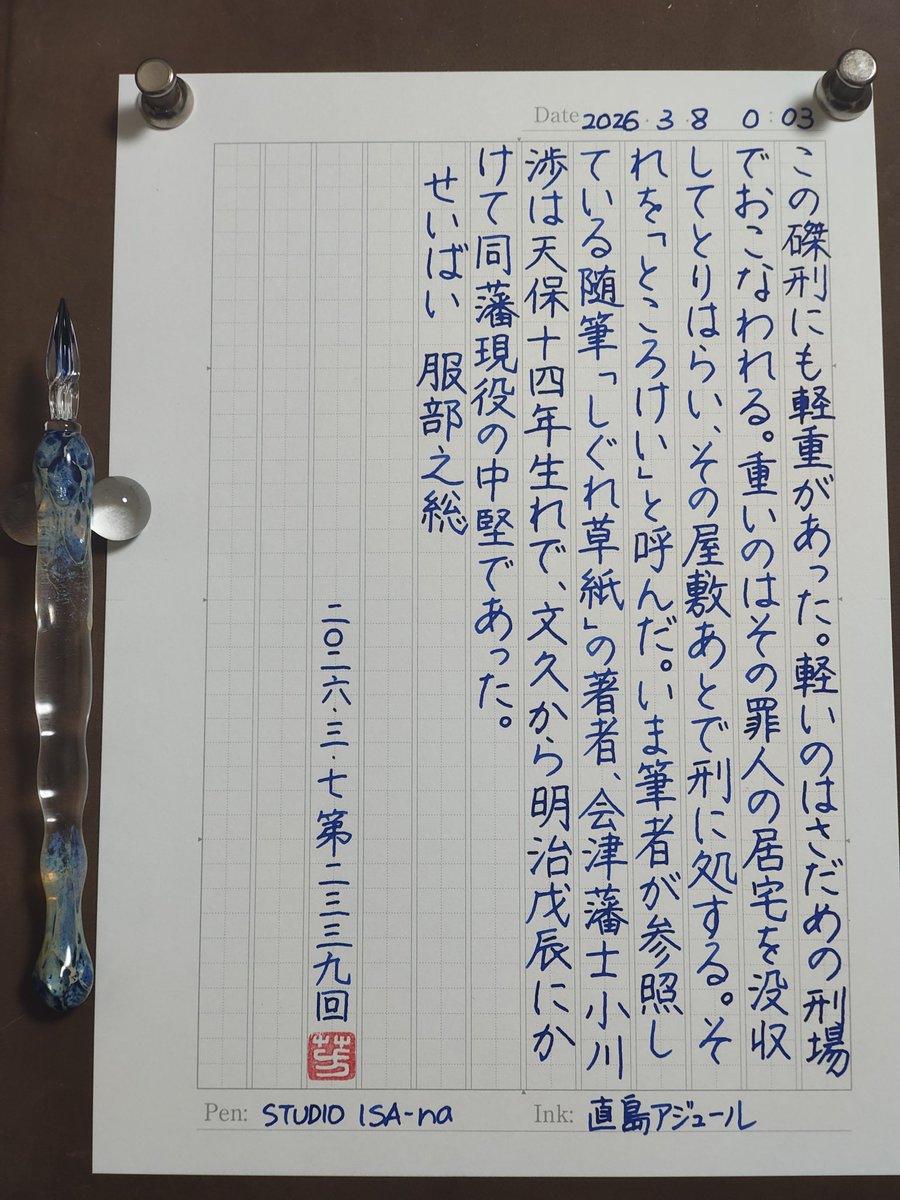 Date 2026・3・8 0:03
この磔刑にも軽重があった。軽いのはさだめの刑場
でおこなわれる。重いのはその罪人の居宅を没収
してとりはらい、その屋敷あとで刑に処する。そ
れを「ところけい」と呼んだ。いま筆者が参照し
ている随筆「しぐれ草紙」の著者、会津藩士小川
渉は天保十四年生れで、文久から明治戊辰にか
けて同藩現役の中堅であった。
せいばい 服部之総
二〇二六・三・七 第二三三九回
Pen: STUDIO ISA-na
Ink: 直島アジュール